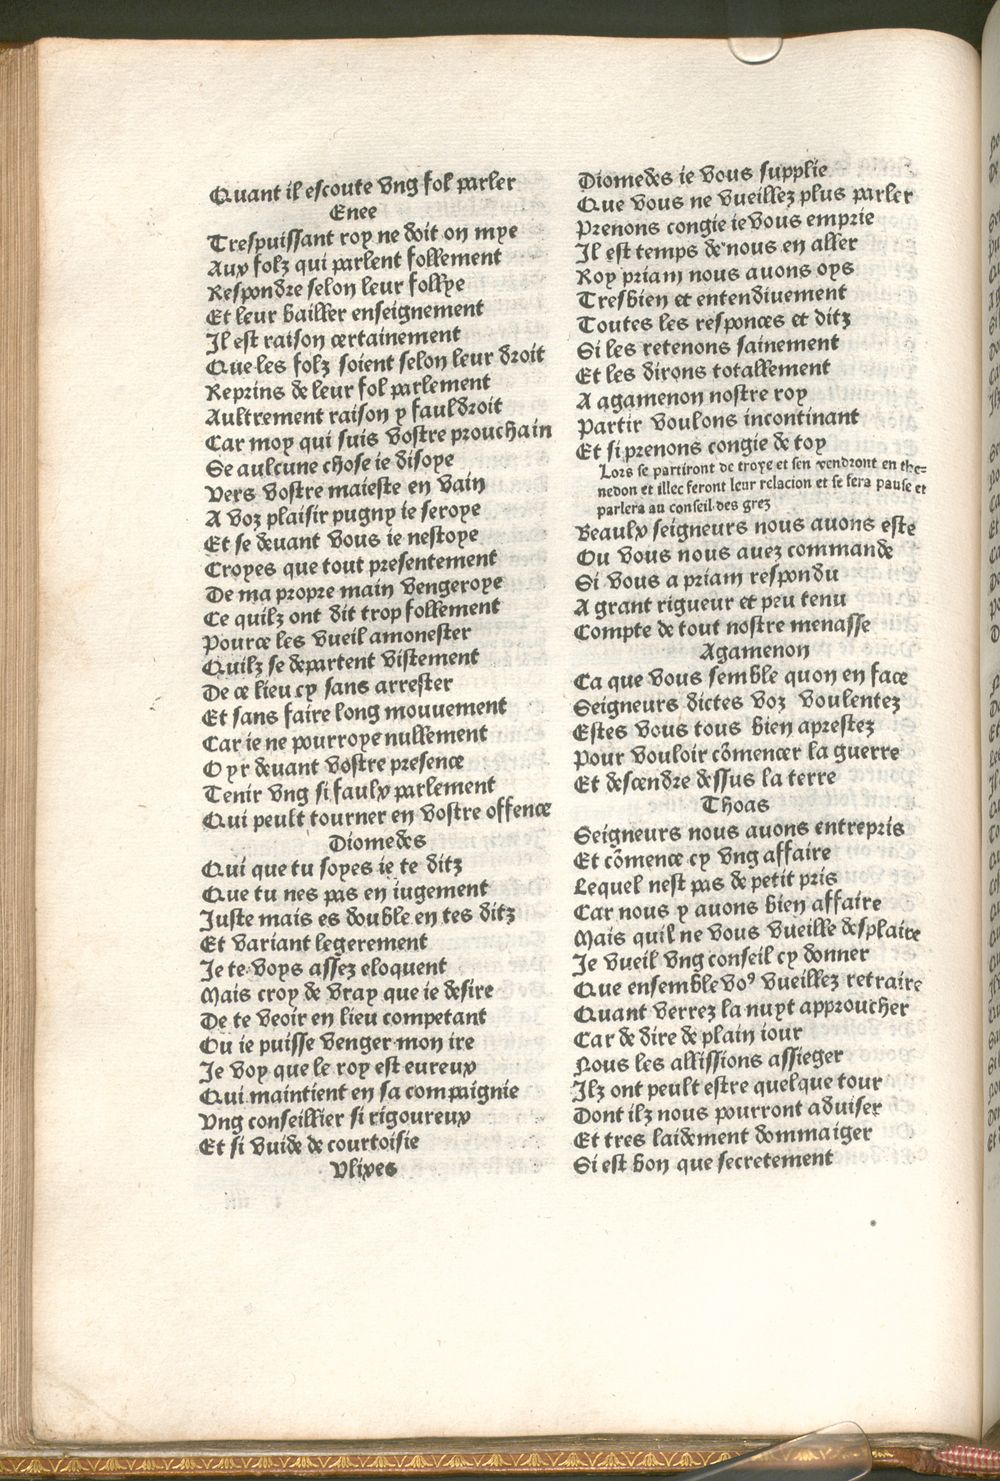 Quant il escoute vng fol parler
Enee
Trespuissant roy ne doit on mye
Aux folz qui parlent follement
Respondre selon leur follye
Et leur bailler enseignement
Il est raison certainement
Que les folz soient selon leur droit
Reprins de leur fol parlement
Aultrement raison y fauldroit
Car moy qui suis vostre prouchain
Se aulcune chose ie disoye
Vers vostre maieste en vain
A voz plaisir pugny ie seroye
Et se devant vous ie nestoye
Croyes que tout presentement
De ma propre main vengeroye
Ce quilz ont dit trop follement
Pource les vueil amonester
Quilz se departent vistement
De ce lieu cy sans arrester
Et sans faire long mouuement
Car ie ne pourroye nullement
Oyr devant vostre presence
Tenir vng si faulx parlement
Qui peult tourner en vostre offence
Diomedes
Qui que tu soyes ie te ditz
Que tu nes pas en iugement
Juste mais es double en tes ditz
Et variant legerement
Je te voys assez eloquent
Mais croy de vray que ie desire
De te veoir en lieu competant
Ou ie puisse venger mon ire
Je voy que le roy est eureux
Qui maintient en sa compaignie
Vng conseillier si rigoureux
Et si vuide de courtoisie
Vlixes
Diomedes ie vous supplie
Que vous ne vueillez plus parler
Prenons congie ie vous emprie
Il est temps de nous en aller
Roy priam nous auons oys
Tresbien et entendiuement
Toutes les responces et ditz
Si les retenons sainement
Et les dirons totallement
A agamenon nostre roy
Partir voulons incontinant
Et si prenons congie de toy
Lors se partiront de troye et sen vendront en the=
nedon et illec feront leur relacion et se fera pause et
parlera au conseil des grez
Beaulx seigneurs nous auons este
Ou vous nous auez commande
Si vous a priam respondu
A grant rigueur et peu tenu
Compte de tout nostre menasse
Agamenon
Ca que vous semble quon en face
Seigneurs dictes voz voulentez
Estes vous tous bien aprestez
Pour vouloir cõmencer la guerre
Et descendre dessus la terre
Thoas
Seigneurs nous auons entrepris
Et cõmence cy vng affaire
Lequel nest pas de petit pris
Car nous y auons bien affaire
Mais quil ne vous vueille desplaire
Je vueil vng conseil cy donner
Que ensemble voꝰ vueillez retraire
Quant verrez la nuyt approucher
Car de dire de plain iour
Nous les allissions assieger
Ilz ont peult estre quelque tour
Dont ilz nous pourront aduiser
Et tres laidement dommaiger
Si est bon que secretement